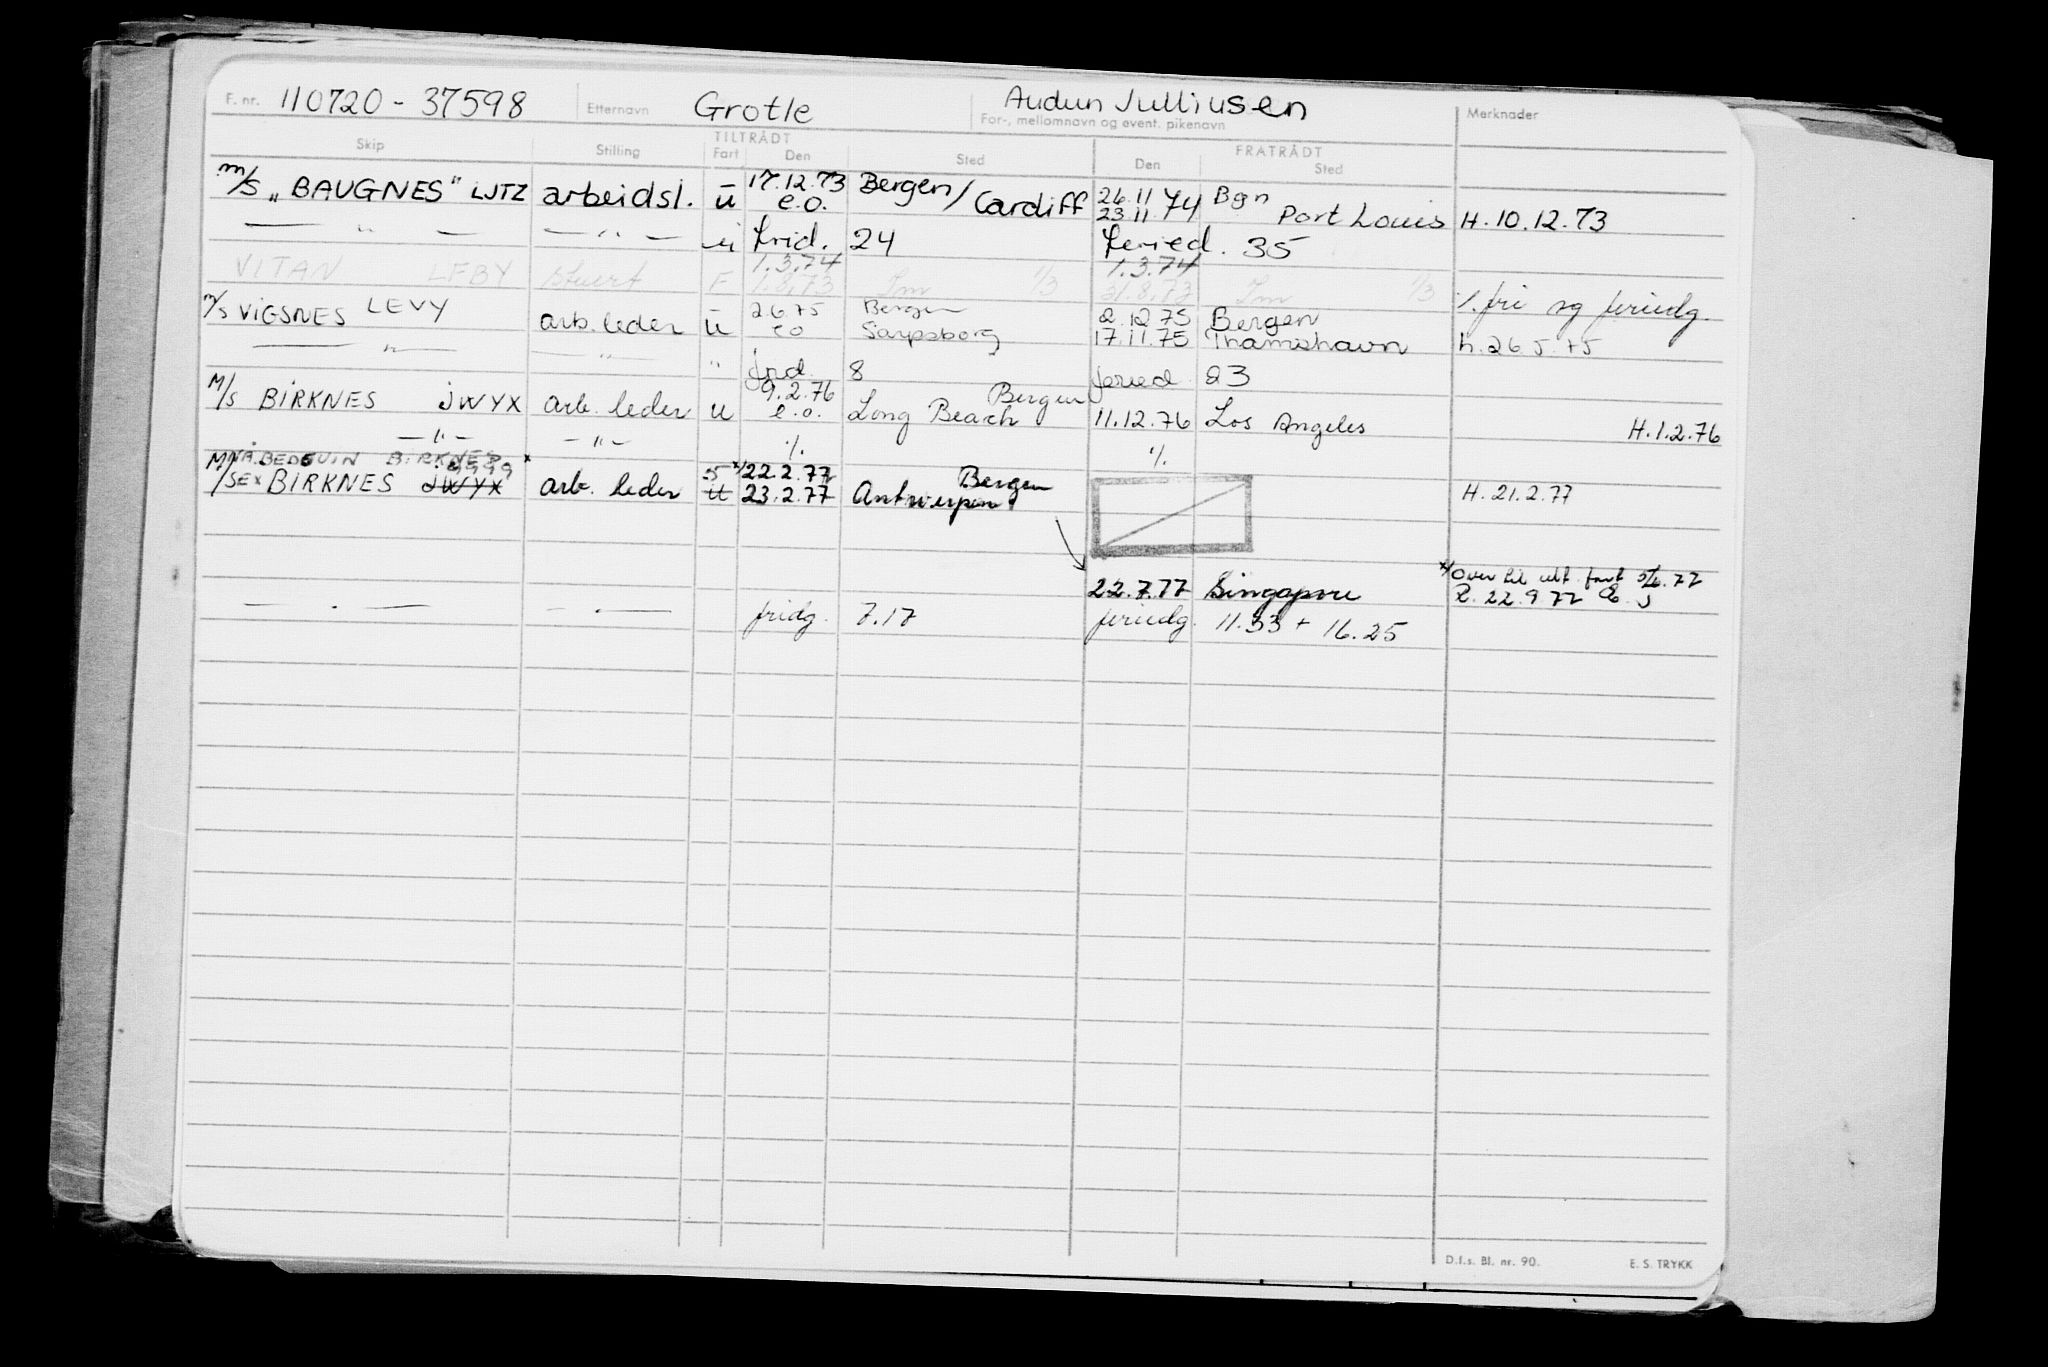 F. nr. 110720 - 37598 Etternavn Grotle Audun Julliusen
For-, mellomnavn og event. pikenavn Merknader
Skip Stilling TILTRÅDT Fart Den Sted FRATRÅDT Den Sted
m/s „BAUGNES" LJTZ arbeidsl. u 17.12.73 e.o. Bergen/Cardiff 26.11 23.11.74 Bgn Port Louis H. 10.12.73
— " — — " — u frid. 24 feried. 35
VITAN LFBY stuert F 1.3.74 1.8.73 1/3 1.3.74 31.8.73 1/3 %. fri og feriedg.
m/s VIGSNES LEVY arb. leder u 2.6.75 eo Bergen Sarpsborg 2.12.75 17.11.75 Bergen Thamshavn h. 26.5.75
— " — — " — " frid. 8 feried. 23
M/s BIRKNES JWYX arb. leder u 9.2.76 e.o. Bergen Long Beach 11.12.76 Los Angeles H. 1.2.76
— " — — " — %. %.
NÅ BEDOUIN BIRKNES x
M/S EX BIRKNES JWYX arb. leder ut x/22.2.77 23.2.77 Bergen Antwerpen H. 21.2.77
22.7.77 Singapore x/Over til utl. fart 5/6.77
R. 22.9.77
— . — — . — fridg. 7.17 feriedg. 11.33 + 16.25
D.f.s. Bl. nr. 90. E. S. TRYKK